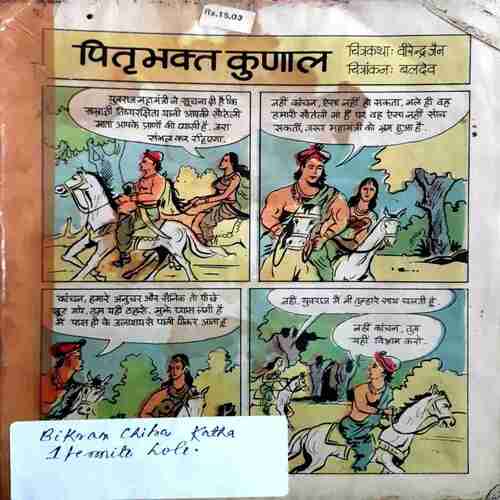 Rs.15.03
पितृभक्त कुणाल
चित्रकथा: वीरेन्द्र जैन
चित्रांकन: बलदेव
युवराज महामंत्री ने सूचना दी है कि
सम्राज्ञी तिष्यरक्षिता यानी आपकी सौतेली
माता आपके प्राणों की प्यासी हैं. जरा
संभल कर रहिएगा.
नहीं कांचन, ऐसा नहीं हो सकता, भले ही वह
हमारी सौतेली मां हैं पर वह ऐसा नहीं सोच
सकतीं, जरूर महामंत्री को भ्रम हुआ है.
कांचन, हमारे अनुचर और सैनिक तो पीछे
छूट गये. तुम यहीं ठहरो. मुझे प्यास लगी है
मैं पास ही के जलाशय से पानी पीकर आता हूं
नहीं, युवराज मैं भी तुम्हारे साथ चलती हूं
नहीं कांचन, तुम
यहीं विश्राम करो.
Bikram Chitra Katha
1 termite hole.